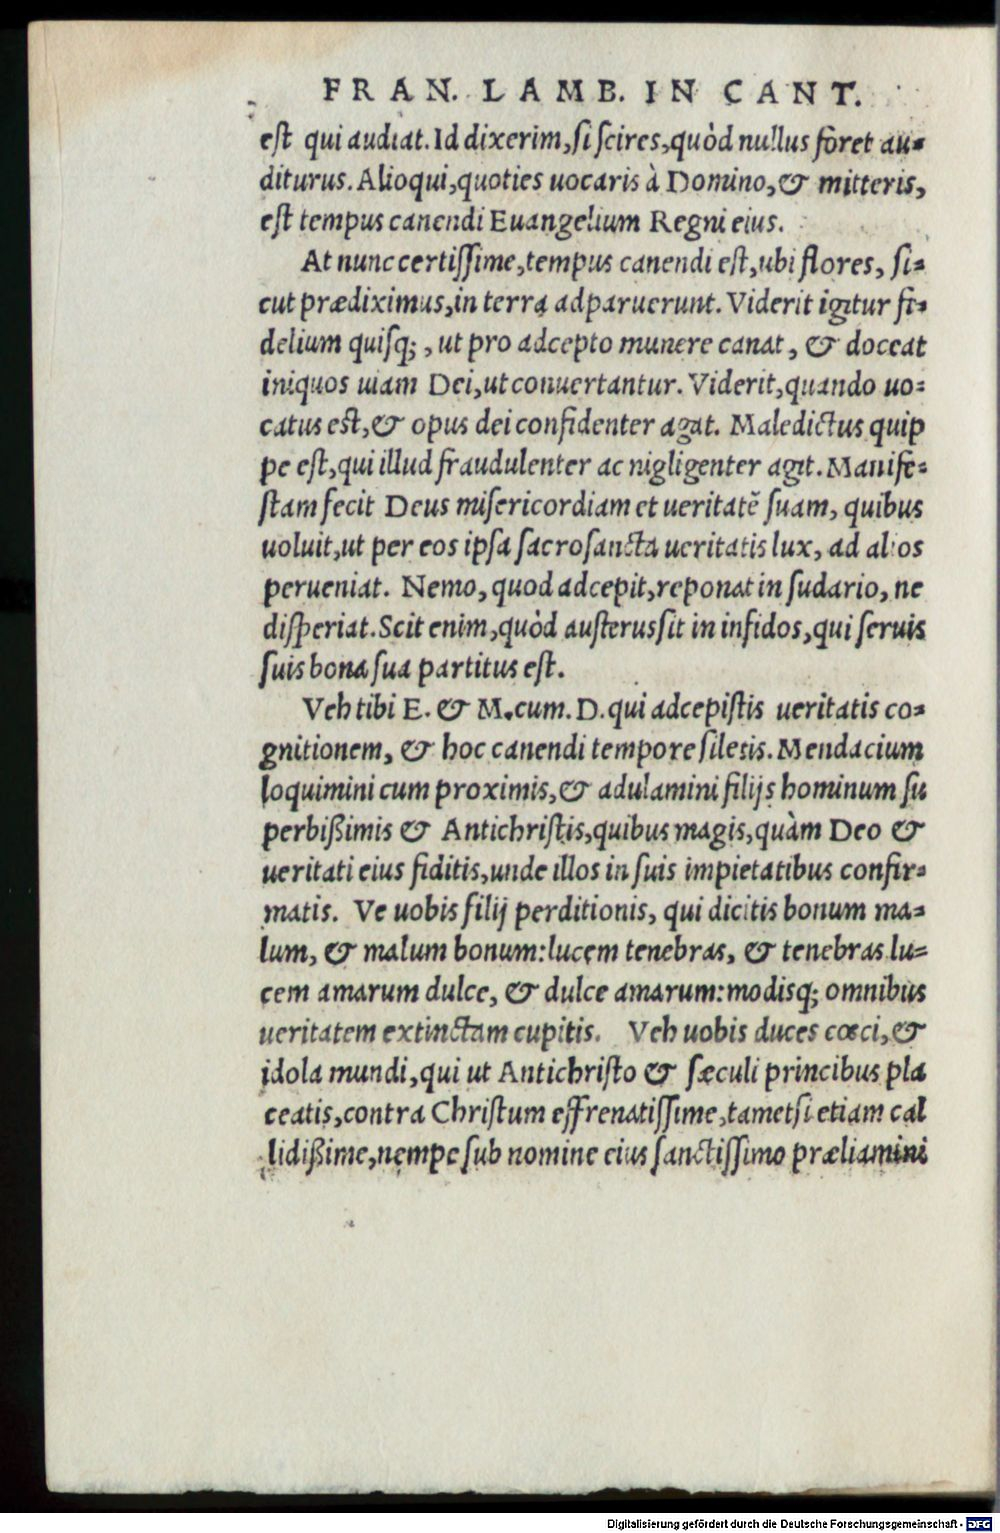 FRAN. LAMB. IN CANT.
est qui audiat. Id dixerim, si scires, quòd nullus foret au-
diturus. Alioqui, quoties uocaris à Domino, & mitteris,
est tempus canendi Euangelium Regni eius.
At nunc certissime, tempus canendi est, ubi flores, si-
cut prædiximus, in terra adparuerunt. Viderit igitur fi-
delium quisq;, ut pro adcepto munere canat, & doceat
iniquos uiam Dei, ut conuertantur. Viderit, quando uo-
catus est, & opus dei confidenter agat. Maledictus quip
pe est, qui illud fraudulenter ac nigligenter agit. Manife-
stam fecit Deus misericordiam et ueritatē suam, quibus
uoluit, ut per eos ipsa sacrosancta ueritatis lux, ad alios
perueniat. Nemo, quod adcepit, reponat in sudario, ne
disperiat. Scit enim, quòd austerus sit in infidos, qui seruis
suis bona sua partitus est.
Veh tibi E. & M. cum. D. qui adcepistis ueritatis co-
gnitionem, & hoc canendi tempore siletis. Mendacium
loquimini cum proximis, & adulamini filijs hominum su
perbißimis & Antichristis, quibus magis, quàm Deo &
ueritati eius fiditis, unde illos in suis impietatibus confir-
matis. Ve uobis filij perditionis, qui dicitis bonum ma-
lum, & malum bonum: lucem tenebras, & tenebras lu-
cem amarum dulce, & dulce amarum: modisq; omnibus
ueritatem extinctam cupitis. Veh uobis duces cœci, &
idola mundi, qui ut Antichristo & sæculi principibus pla
ceatis, contra Christum effrenatissime, tametsi etiam cal
lidißime, nempe sub nomine eius sanctissimo præliamini
Digitalisierung gefördert durch die Deutsche Forschungsgemeinschaft - DFG